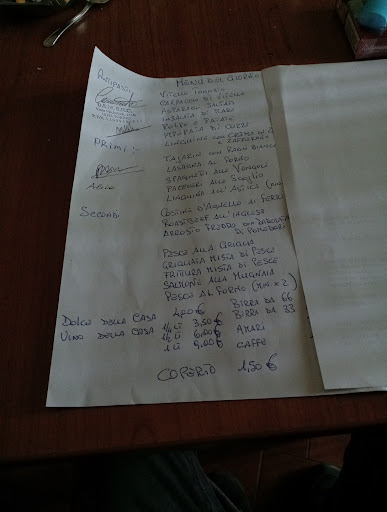 MENU DEL GIORNO
ANTIPASTI
VITELLO TONNATO
CARPACCIO DI VITELLO
INSALATA DI MARE
POLPO E PATATE
PEPATA DI COZZE
LINGUINE CON CREMA DI
E ZAFFERANO
PRIMI:
TAJARIN CON RAGÙ BIANCO
LASAGNA AL FORNO
SPAGHETTI ALLE VONGOLE
PACCHERI ALLO SCOGLIO
LINGUINA ALL'ASTICE
SECONDI
COSTINE D'AGNELLO AI FERRI
ROASTBEEF ALL'INGLESE
ARROSTO FREDDO CON
DI POMODORI
PESCE ALLA GRIGLIA
GRIGLIATA MISTA DI PESCE
FRITTURA MISTA DI PESCE
SALMONE ALLA MUGNAIA
PESCE AL FORNO (MIN X 2)
DOLCE DELLA CASA 4,00 € BIRRA DA 66
VINO DELLA CASA 1/4 LI 3,50 € BIRRA DA 33
1/2 LI 6,00 € AMARI
1 LI 9,00 € CAFFE
COPERTO 1,50 €